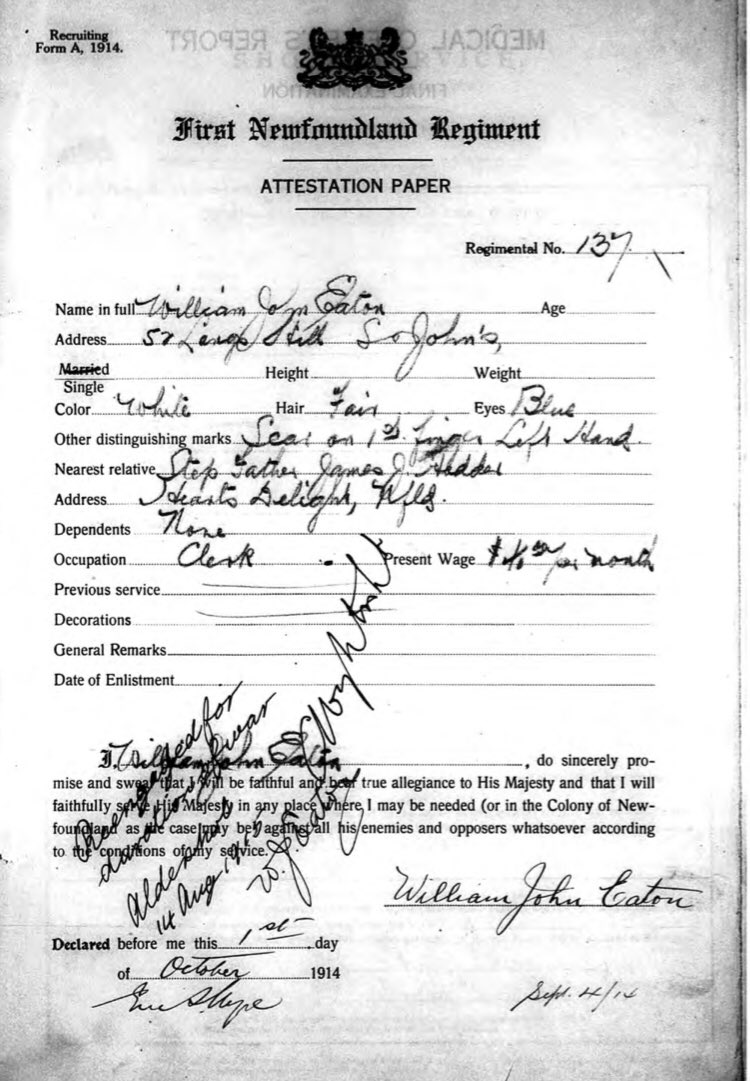 Recruiting
Form A, 1914.
First Newfoundland Regiment
ATTESTATION PAPER
Regimental No. 137
Name in full William John Eaton Age
Address 52 Hill St John's,
Married
Single
Height Weight
Color White Hair Fair Eyes Blue
Other distinguishing marks Scar on 1st finger Left Hand.
Nearest relative Step Father James J. Hedder
Address Hearts Delight, Nfld.
Dependents None
Occupation Clerk Present Wage per month
Previous service
Decorations
General Remarks
Date of Enlistment
I, William John Eaton, do sincerely pro-
mise and swear that I will be faithful and bear true allegiance to His Majesty and that I will
faithfully serve His Majesty in any place where I may be needed (or in the Colony of New-
foundland as the case may be) against all his enemies and opposers whatsoever according
to the conditions of my service.
Reengaged for
duration of war
Aldershot
14 Aug 1915
W. J. Eaton
William John Eaton
Declared before me this 1st day
of October 1914
Sept. 4/14